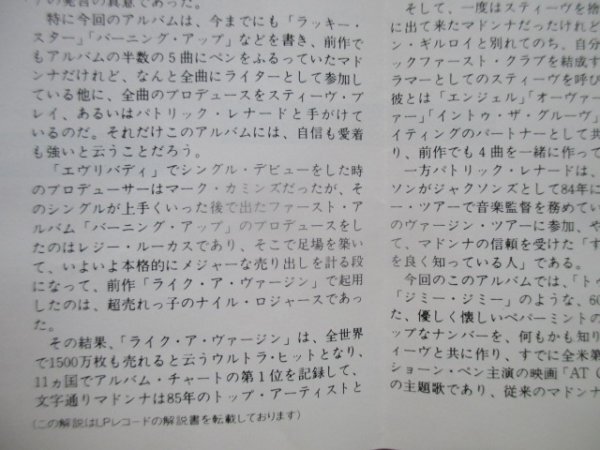 の発言の真意であった。
特に今回のアルバムは、今までにも「ラッキー・
スター」「バーニング・アップ」などを書き、前作で
もアルバムの半数の5曲にペンをふるっていたマド
ンナだけれど、なんと全曲にライターとして参加し
ている他に、全曲のプロデュースをスティーヴ・ブ
レイ、あるいはパトリック・レナードと手がけて
いるのだ。それだけこのアルバムには、自信も愛着
も強いと云うことだろう。
「エヴリバディ」でシングル・デビューをした時
のプロデューサーはマーク・カミンズだったが、そ
のシングルが上手くいった後で出たファースト・ア
ルバム「バーニング・アップ」のプロデュースをし
たのはレジー・ルーカスであり、そこで足場を築い
て、いよいよ本格的にメジャーな売り出しを計る段
になって、前作「ライク・ア・ヴァージン」で起用
したのは、超売れっ子のナイル・ロジャースであっ
た。
その結果、「ライク・ア・ヴァージン」は、全世界
で1500万枚も売れると云うウルトラ・ヒットとなり、
11ヵ国でアルバム・チャートの第1位を記録して、
文字通りマドンナは85年のトップ・アーティストと
(この解説はLPレコードの解説書を転載しております)
そして、一度はスティーヴを捨
に出て来たマドンナだったけれど
ン・ギルロイと別れてのち、自分
ックファースト・クラブを結成す
ラマーとしてのスティーヴを呼び
彼とは「エンジェル」「オーヴァー
ァー」「イントゥ・ザ・グルーヴ」
イティングのパートナーとして共
り、前作でも4曲を一緒に作って
一方パトリック・レナードは、
ソンがジャクソンズとして84年に
ー・ツアーで音楽監督を務めてい
のヴァージン・ツアーに参加、や
て、マドンナの信頼を受けた「す
を良く知っている人」である。
今回のこのアルバムでは、「トゥ
「ジミー・ジミー」のような、60
た、優しく懐しいペパーミントの
ップなナンバーを、何もかも知り
ィーヴと共に作り、すでに全米第
ショーン・ペン主演の映画「AT C
の主題歌であり、従来のマドンナ